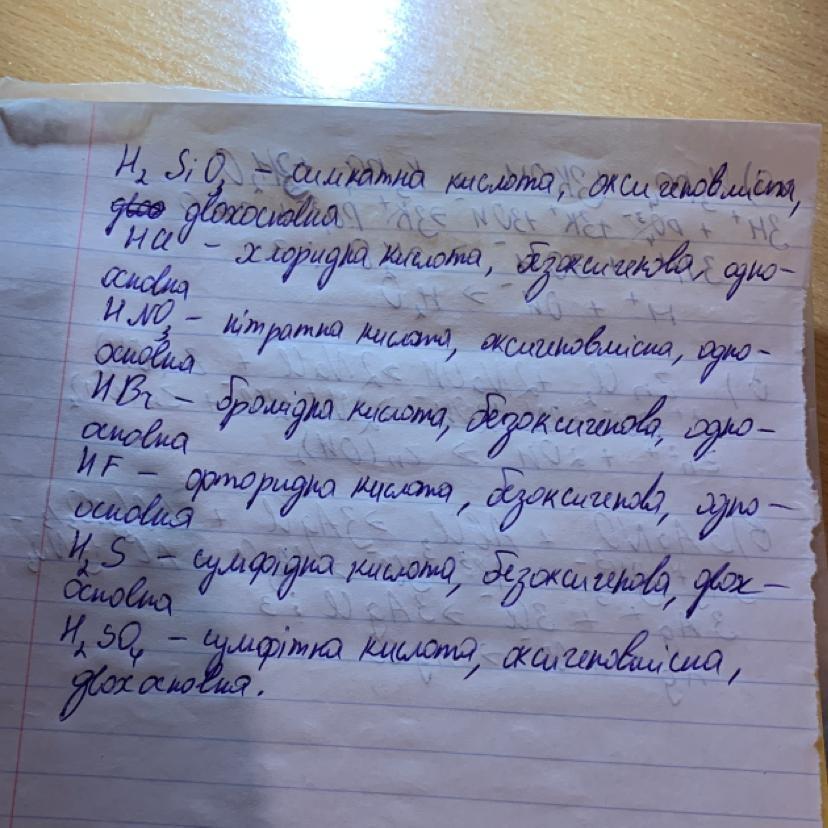 H₂SiO₃ – силікатна кислота, оксигеновмісна,
двохосновна
HCl – хлоридна кислота, безоксигенова, одно-
основна
HNO₃ – нітратна кислота, оксигеновмісна, одно-
основна
HBr – бромідна кислота, безоксигенова, одно-
основна
HF – фторидна кислота, безоксигенова, одно-
основна
H₂S – сульфідна кислота, безоксигенова, двох-
основна
H₂SO₄ – сульфітна кислота, оксигеновмісна,
двохосновна.